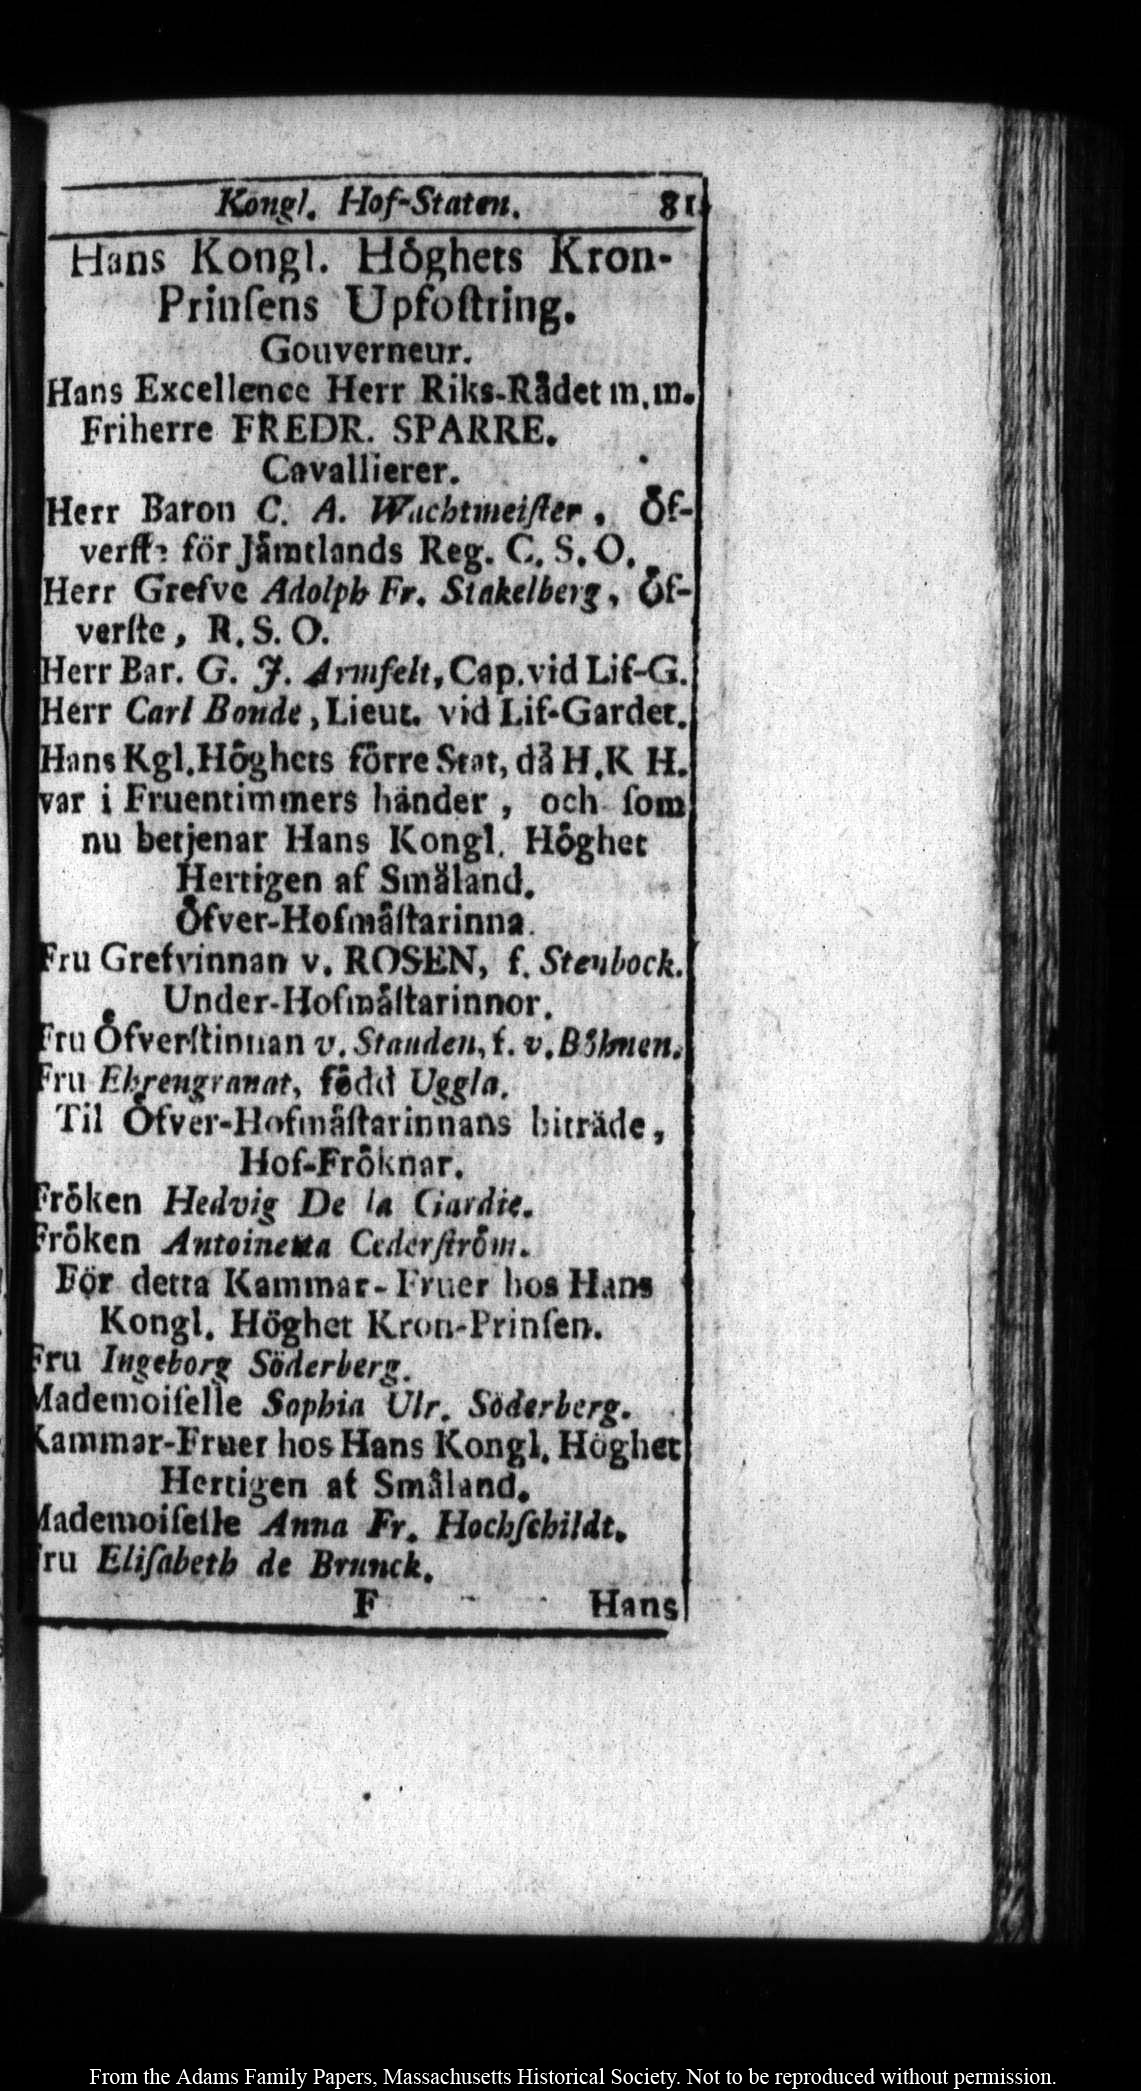 Kongl. Hof-Staten. 81
Hans Kongl. Höghets Kron-
Prinſens Upfoſtring.
Gouverneur.
Hans Excellence Herr Riks-Rådet m. m.
Friherre FREDR. SPARRE.
Cavallierer.
Herr Baron C. A. Wachtmeiſter, Öf-
verſte för Jämtlands Reg. C. S. O.
Herr Grefve Adolph Fr. Stakelberg, Öf-
verſte, R. S. O.
Herr Bar. G. J. Armfelt, Cap. vid Lif-G.
Herr Carl Bonde, Lieut. vid Lif-Gardet.
Hans Kgl. Höghets förre Stat, då H. K H.
var i Fruentimmers händer, och ſom
nu betjenar Hans Kongl. Höghet
Hertigen af Småland.
Öfver-Hofmäſtarinna.
Fru Grefvinnan v. ROSEN, f. Stenbock.
Under-Hofmäſtarinnor.
Fru Öfverſtinnan v. Stauden, f. v. Böhnen.
Fru Ehrengranat, född Uggla.
Til Öfver-Hofmäſtarinnans biträde,
Hof-Fröknar.
Fröken Hedvig De la Gardie.
Fröken Antoinetta Cederſtröm.
För detta Kammar-Fruer hos Hans
Kongl. Höghet Kron-Prinſen.
Fru Ingeborg Söderberg.
Mademoiſelle Sophia Ulr. Söderberg.
Kammar-Fruer hos Hans Kongl. Höghet
Hertigen af Småland.
Mademoiſelle Anna Fr. Hochſchildt.
Fru Eliſabeth de Brunck.
F Hans
From the Adams Family Papers, Massachusetts Historical Society. Not to be reproduced without permission.